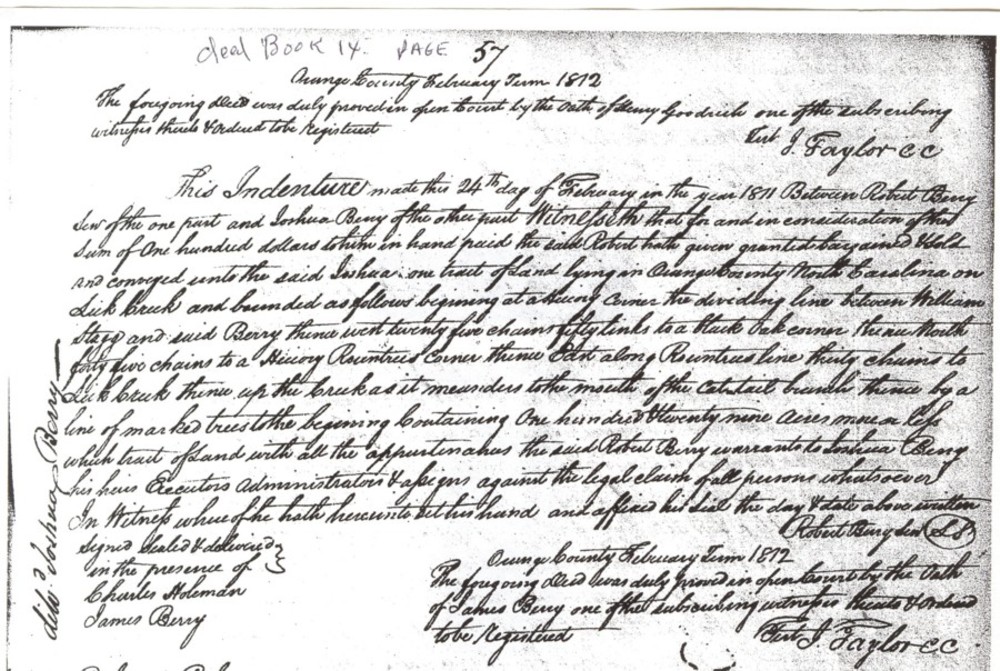 deed BOOK 14. PAGE 57
Orange County February Term 1812
The foregoing Deed was duly proved in open Court by the Oath of Henry Goodrich one of the subscribing
witness thereto & ordered to be Registered
Test J. Taylor CC
This Indenture made this 24th day of February in the year 1811 Between Robert Berry
Senr of the one part and Joshua Berry of the other part Witnesseth that for and in consideration of the
Sum of One hundred dollars to him in hand paid the said Robert hath given granted bargained & sold
and conveyed unto the said Joshua one tract of Land lying in Orange County North Carolina on
Lick Creek and bounded as follows begining at a Hicory corner the dividing line between William
Stagg and said Berry thence west twenty five chains fifty links to a black Oak corner thence North
forty five chains to a Hicory Rountrees corner thence East along Rountrees line thirty chains to
Lick Creek thence up the Creek as it meanders to the mouth of the Catstail branch thence by a
line of marked trees to the begining Containing One hundred & twenty nine Acres more or less
which tract of Land with all the appurtinances the said Robert Berry warrants to Joshua Berry
his heirs Executors Administrators & assigns against the legal claim of all persons whatsoever
In Witness whereof he hath hereunto set his hand and affixed his Seal the day & date above written
Robert Berry Senr LS
Signed Sealed & delivered
in the presence of
Charles Holeman
James Berry
Orange County February Term 1812
The foregoing Deed was duly proved in open Court by the Oath
of James Berry one of the subscribing witnesses thereto & ordered
to be Registered Test J. Taylor CC
Joshua Berry